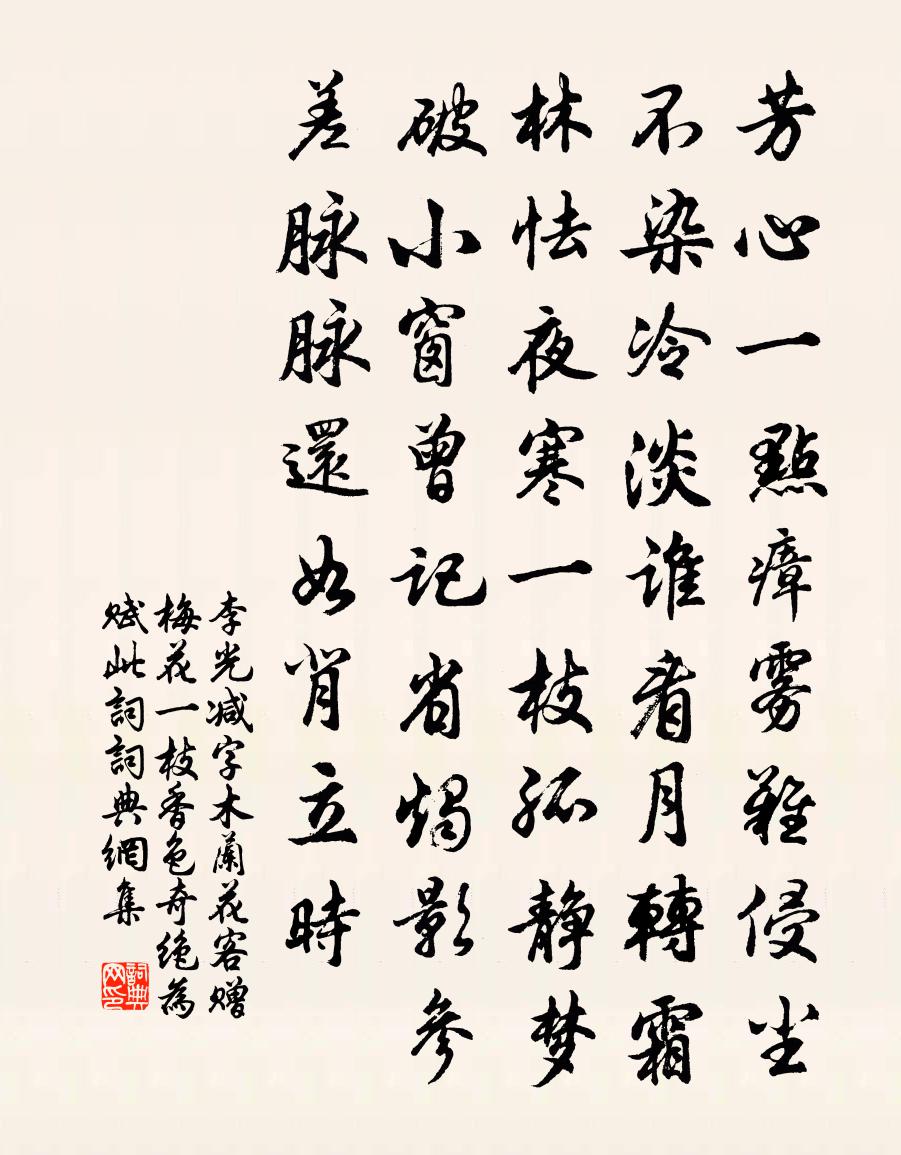 芳心一點瘴雾難侵尘
不染冷淡谁看月轉霜
林怯夜寒一枝孤静梦
破小窗曾记省烛影参
差脉脉還如背立時
李光减字木蘭花客赠
梅花一枝香色奇绝為
赋此詞詞典網集
詞典网印